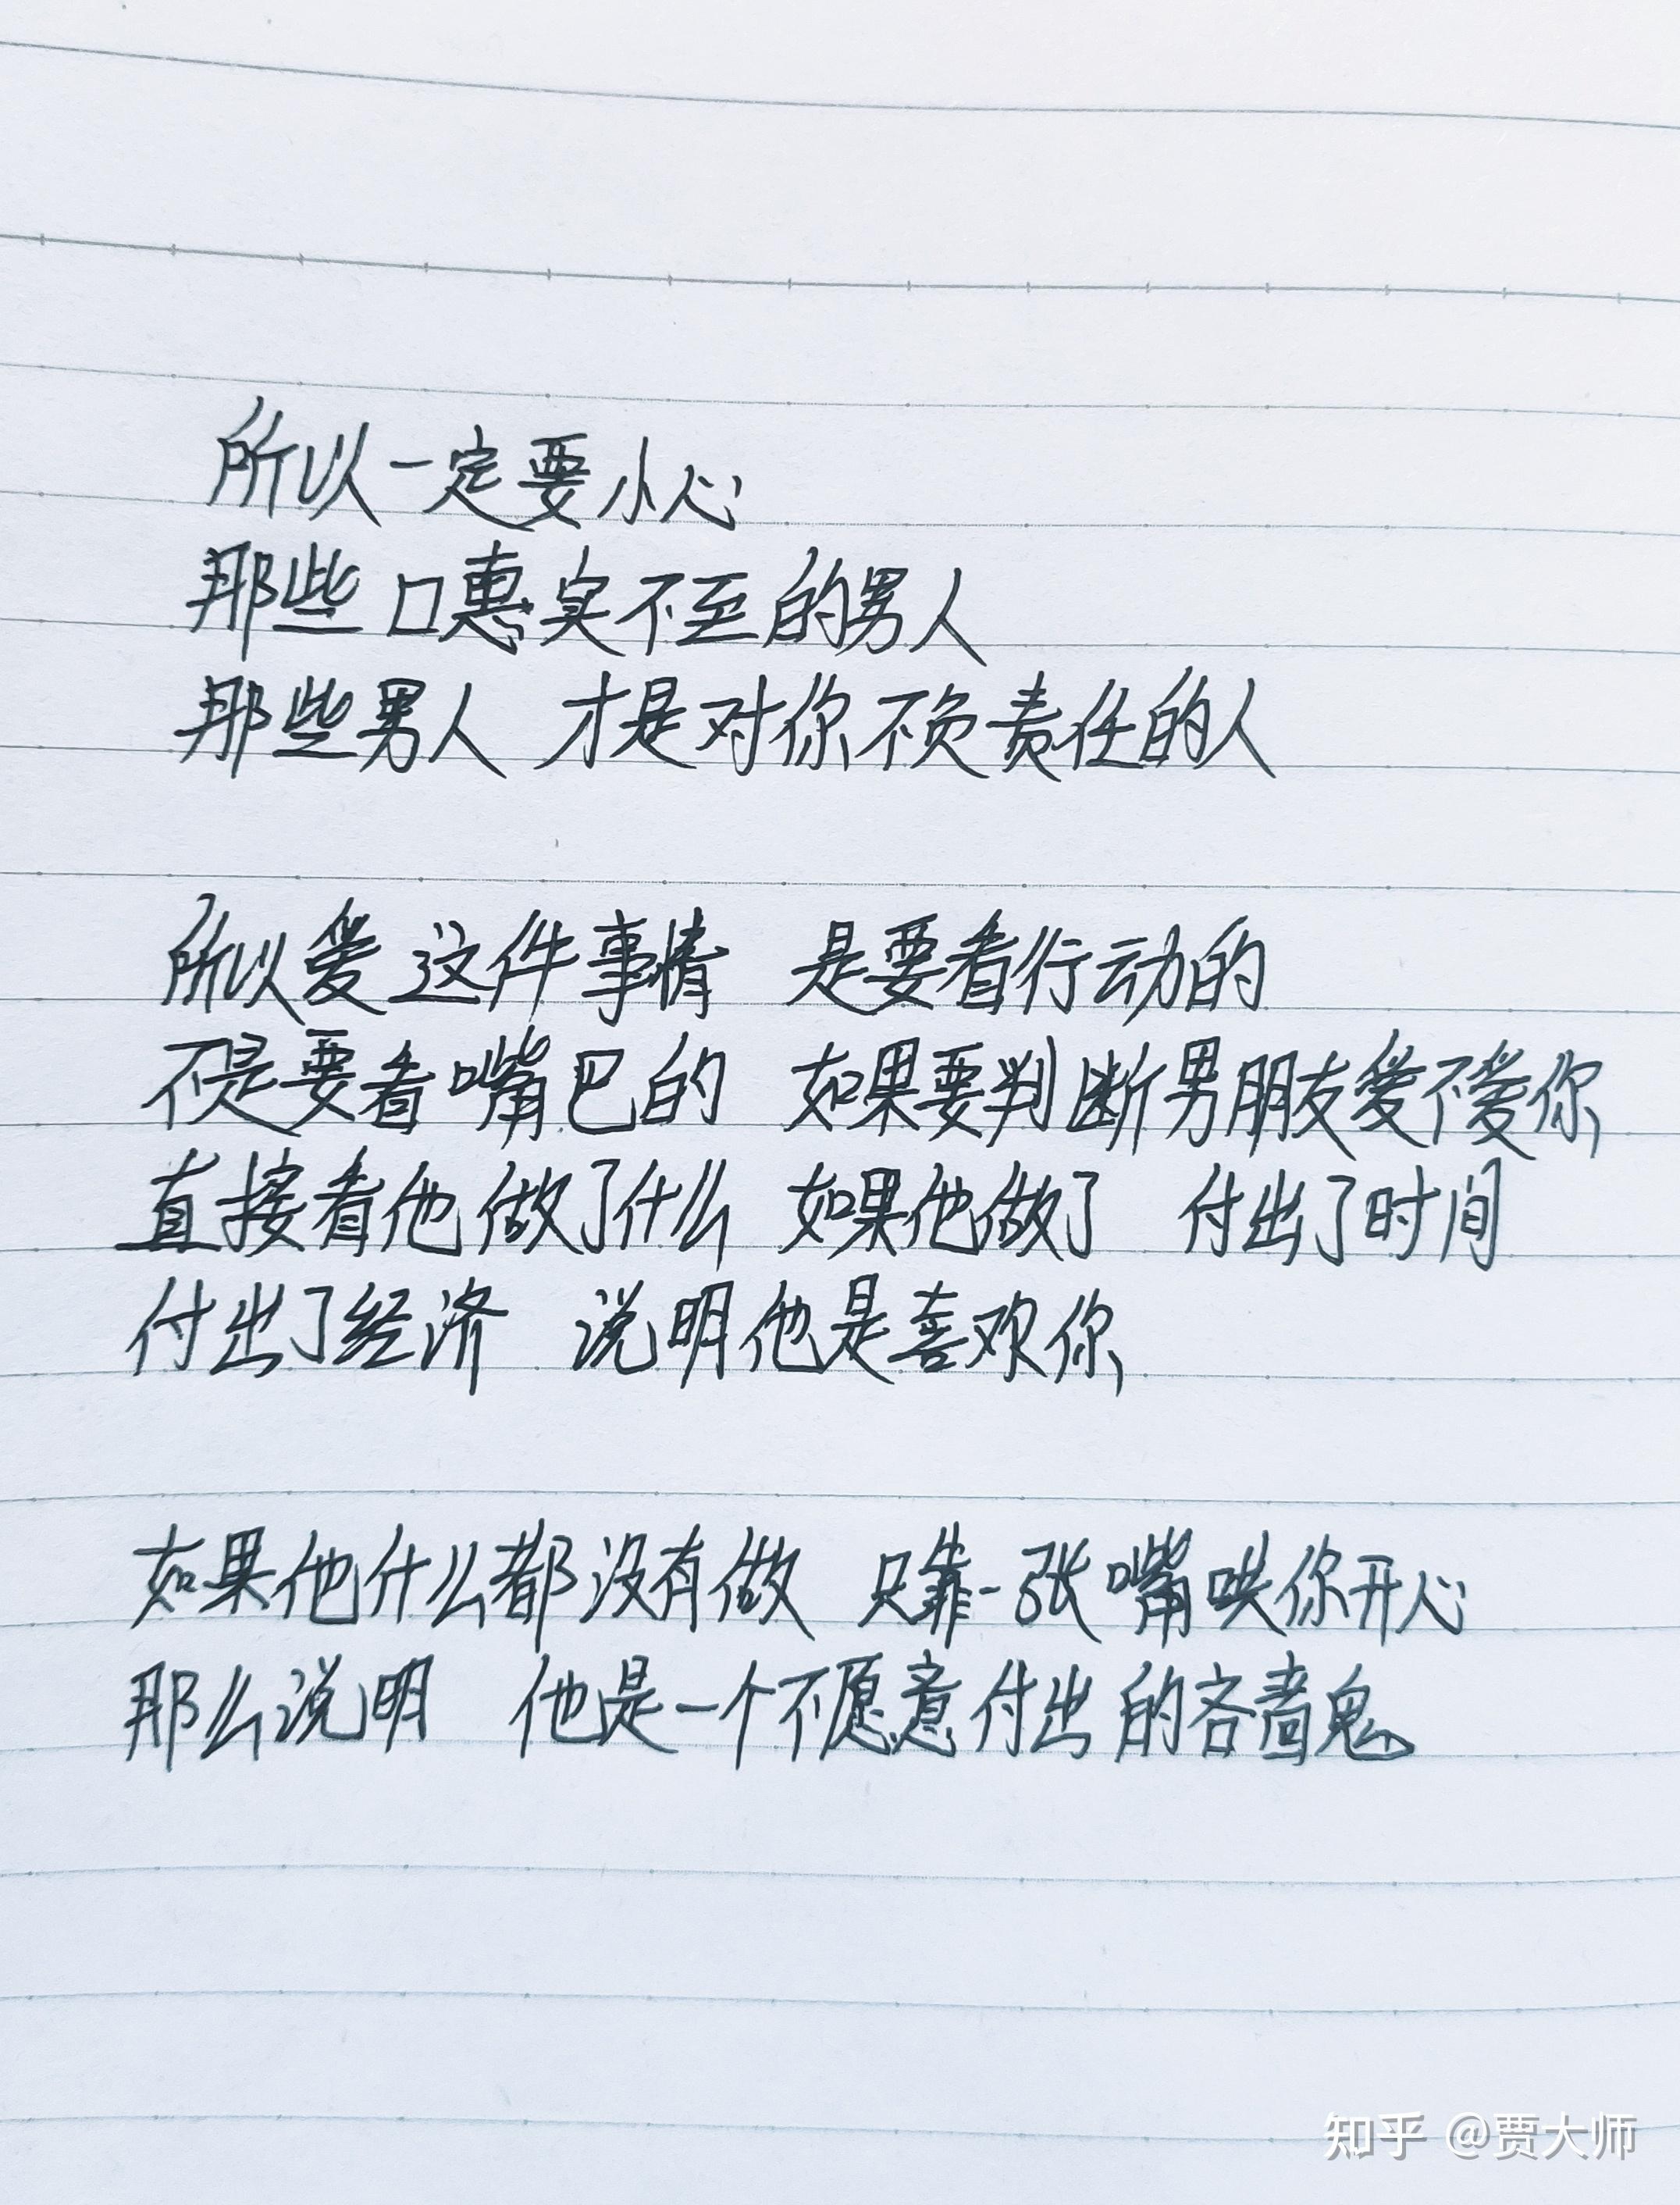 所以一定要小心
那些口惠实不至的男人
那些男人 才是对你不负责任的人
所以爱这件事情 是要看行动的
不是要看嘴巴的 如果要判断男朋友爱不爱你
直接看他做了什么 如果他做了 付出了时间
付出了经济 说明他是喜欢你
如果他什么都没有做 只靠一张嘴哄你开心
那么说明 他是一个不愿意付出的吝啬鬼
知乎 @贾大师